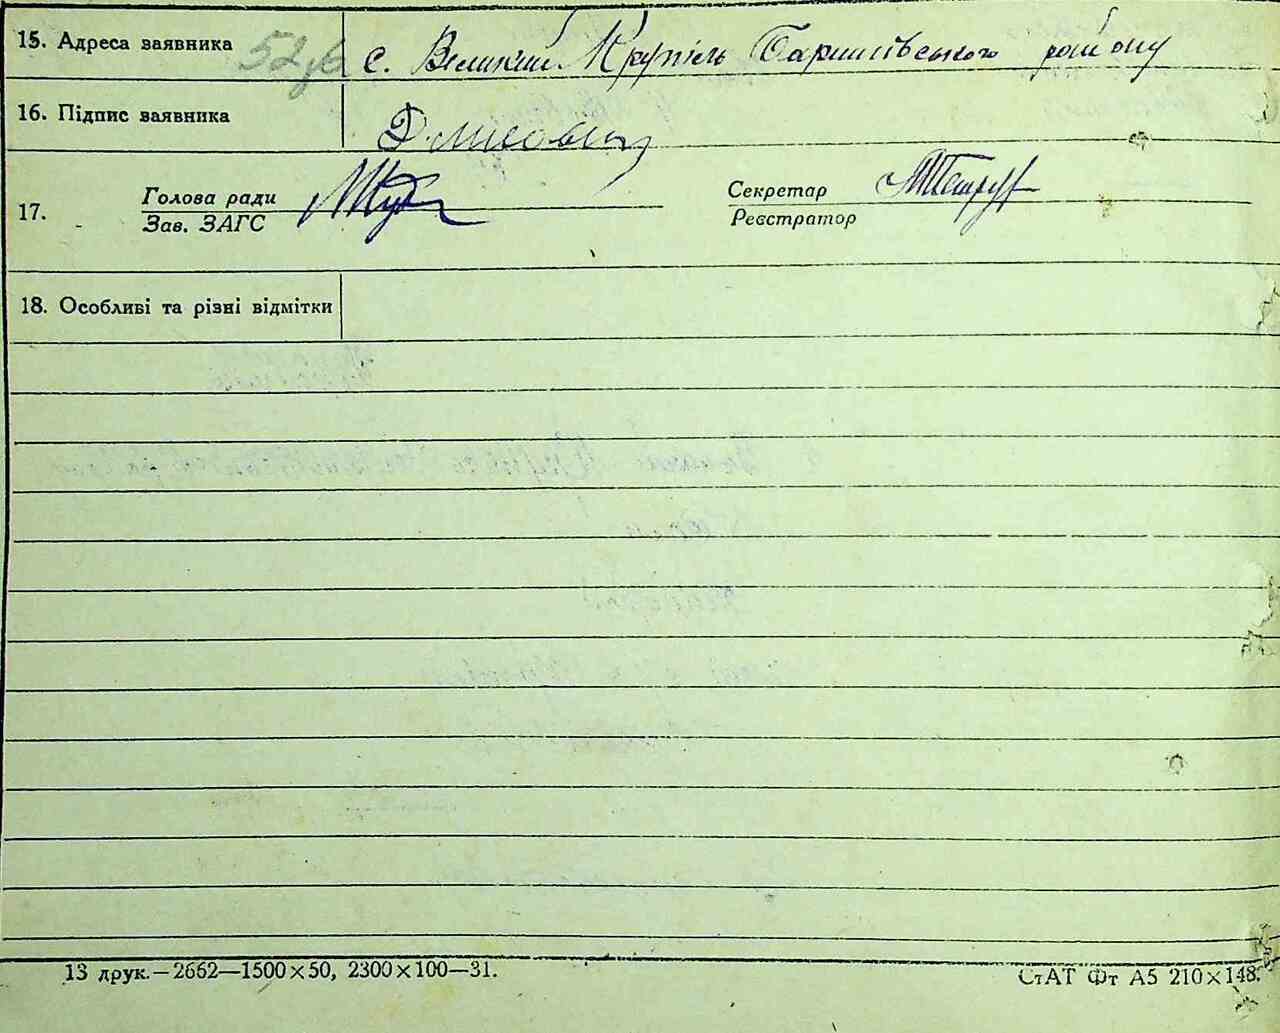 15. Адреса заявника с. Великий Крупіль Баришівського району
16. Підпис заявника
17. Голова ради Секретар
Зав. ЗАГС Реєстратор
18. Особливі та різні відмітки
13 друк.—2662—1500×50, 2300×100—31. СтАТ Фт А5 210×148.